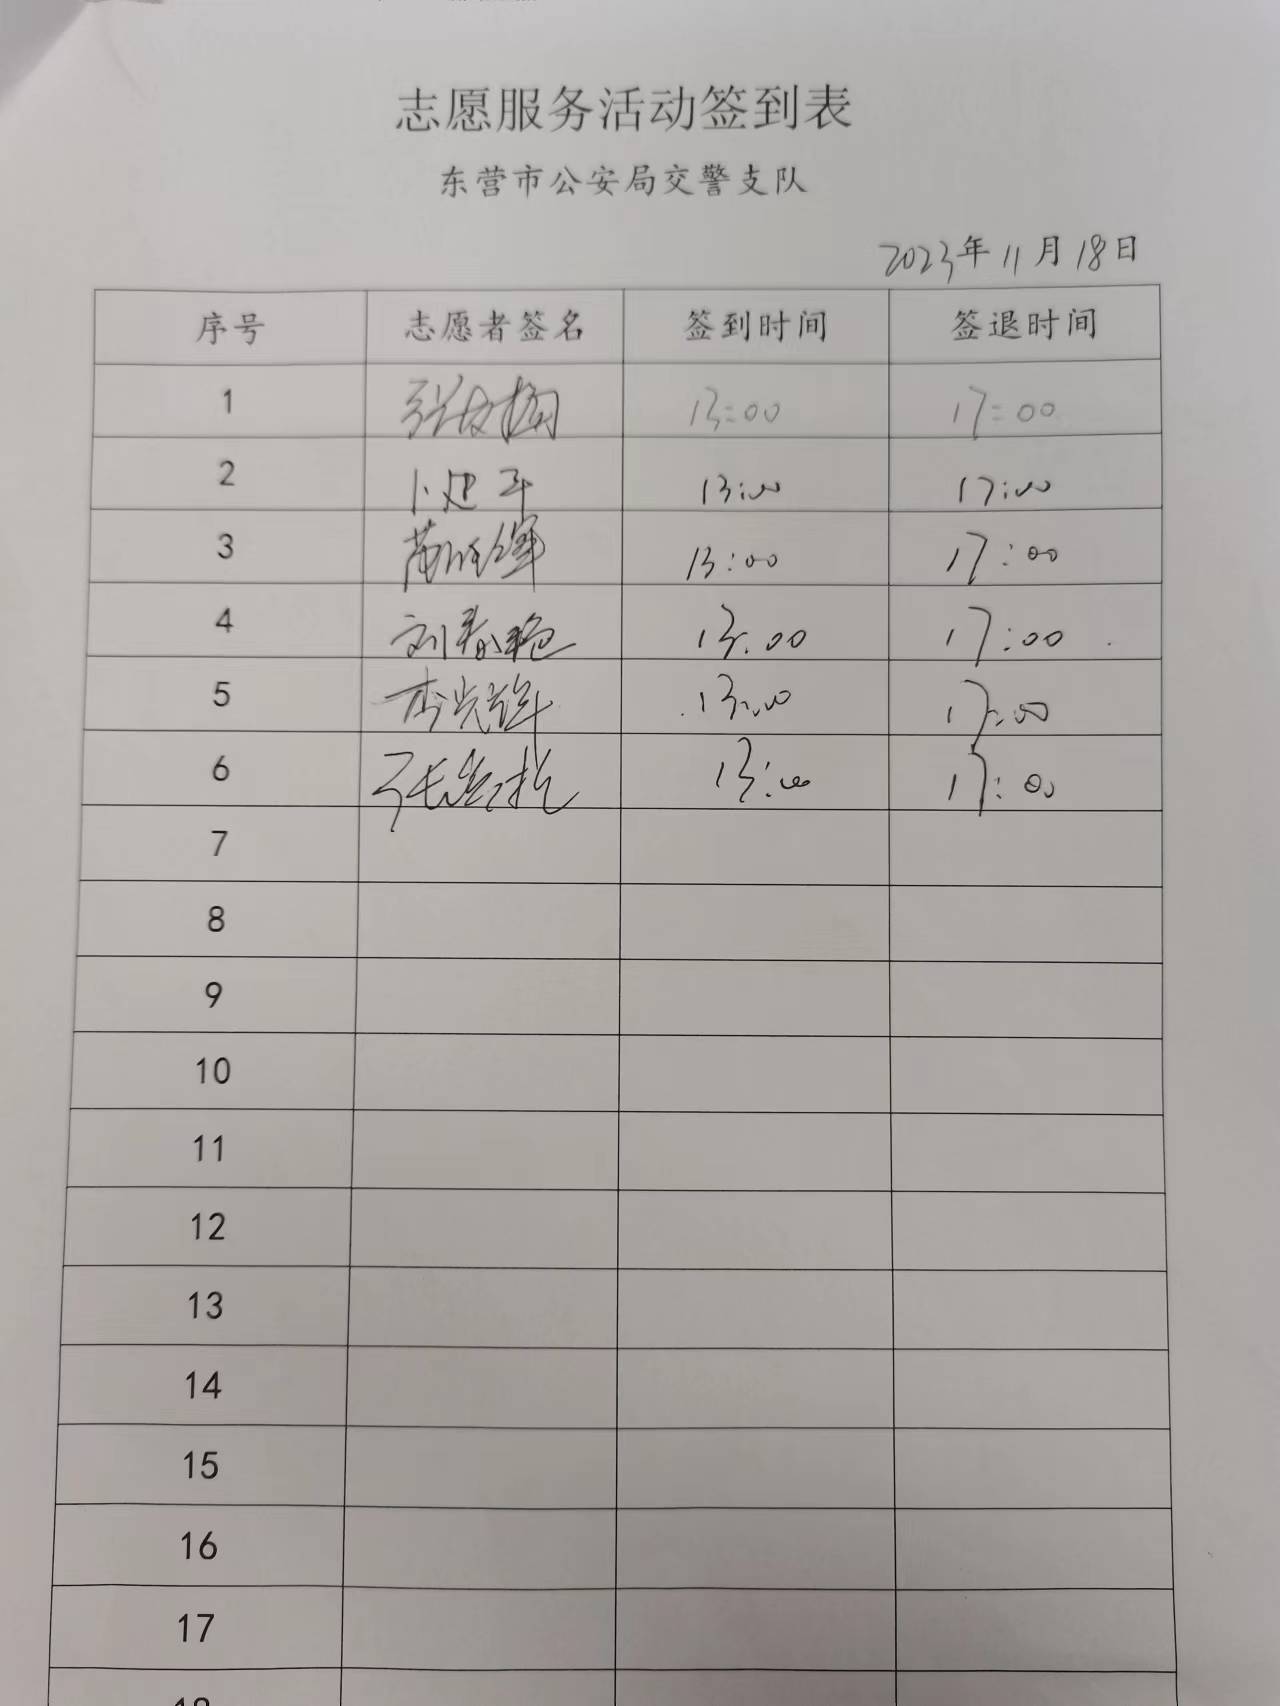 志愿服务活动签到表
东营市公安局交警支队
2023年11月18日
序号 志愿者签名 签到时间 签退时间
1 13:00 17:00
2 13:00 17:00
3 13:00 17:00
4 刘春艳 13:00 17:00
5 13:00 17:00
6 13:00 17:00
7
8
9
10
11
12
13
14
15
16
17
18